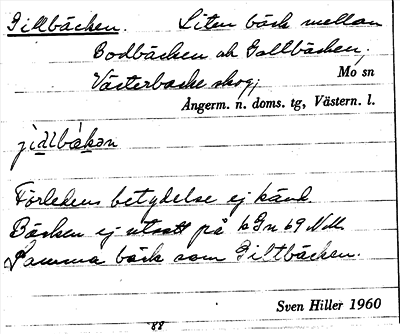 Gillbäcken. Liten bäck mellan
Bodbäcken och Gallbäcken;
Västerbacke skog;
Mo sn
Ångerm. n. doms. tg, Västern. l.
jìdlbàkan
Förledens betydelse ej känd.
Bäcken ej utsatt på
Samma bäck som Giltbäcken.
Sven Hiller 1960
88